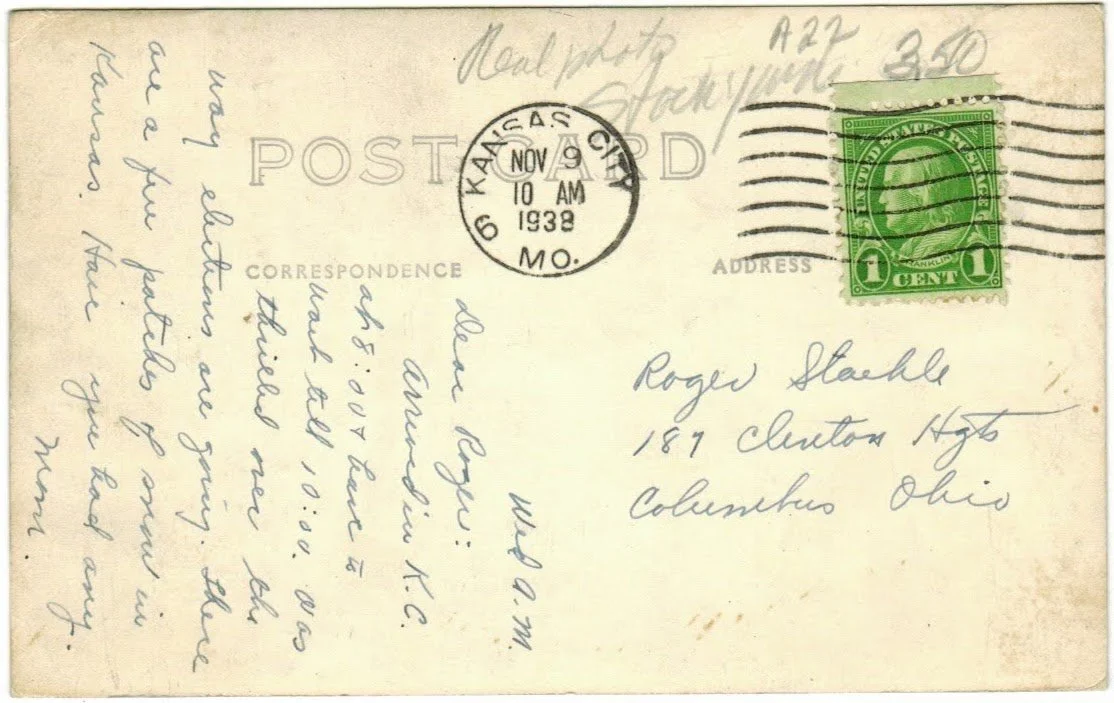 Real photo A22 3.50
Stockyards
POST CARD
6 KANSAS CITY
NOV 9
10 AM
1938
MO.
UNITED STATES POSTAGE
FRANKLIN
1 CENT 1
CORRESPONDENCE
ADDRESS
Wed A.M.
Dear Roger:
Arrived in K.C.
at 8:00 & have to
wait till 10:00. Was
thrilled over the
way elections are going. There
are a few patches of snow in
Kansas. Have you had any.
Mom.
Roger Staehle
187 Clinton Hgts
Columbus Ohio